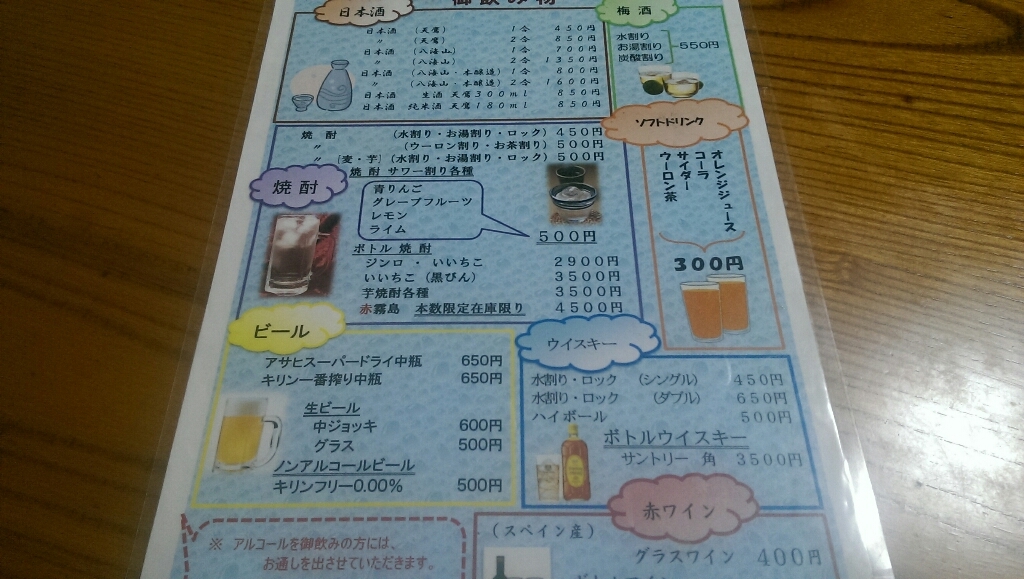 御飲み物
日本酒
日本酒 (天鷹) 1合 450円
〃 (天鷹) 2合 850円
日本酒 (八海山) 1合 700円
〃 (八海山) 2合 1350円
日本酒 (八海山・本醸造) 1合 800円
〃 (八海山・本醸造) 2合 1600円
日本酒 生酒 天鷹300ml 850円
日本酒 純米酒 天鷹180ml 850円
梅酒
水割り
お湯割り
炭酸割り
550円
焼酎
焼酎 (水割り・お湯割り・ロック) 450円
〃 (ウーロン割り・お茶割り) 500円
〃 [麦・芋] (水割り・お湯割り・ロック) 500円
焼酎 サワー割り各種
青りんご
グレープフルーツ
レモン
ライム
500円
ボトル 焼酎
ジンロ ・ いいちこ 2900円
いいちこ (黒びん) 3500円
芋焼酎各種 3500円
赤霧島 本数限定在庫限り 4500円
ソフトドリンク
オレンジジュース
コーラ
サイダー
ウーロン茶
300円
ビール
アサヒスーパードライ中瓶 650円
キリン一番搾り中瓶 650円
生ビール
中ジョッキ 600円
グラス 500円
ノンアルコールビール
キリンフリー0.00% 500円
ウイスキー
水割り・ロック (シングル) 450円
水割り・ロック (ダブル) 650円
ハイボール 500円
ボトルウイスキー
サントリー 角 3500円
※ アルコールを御飲みの方には、
お通しを出させていただきます。
赤ワイン
(スペイン産)
グラスワイン 400円